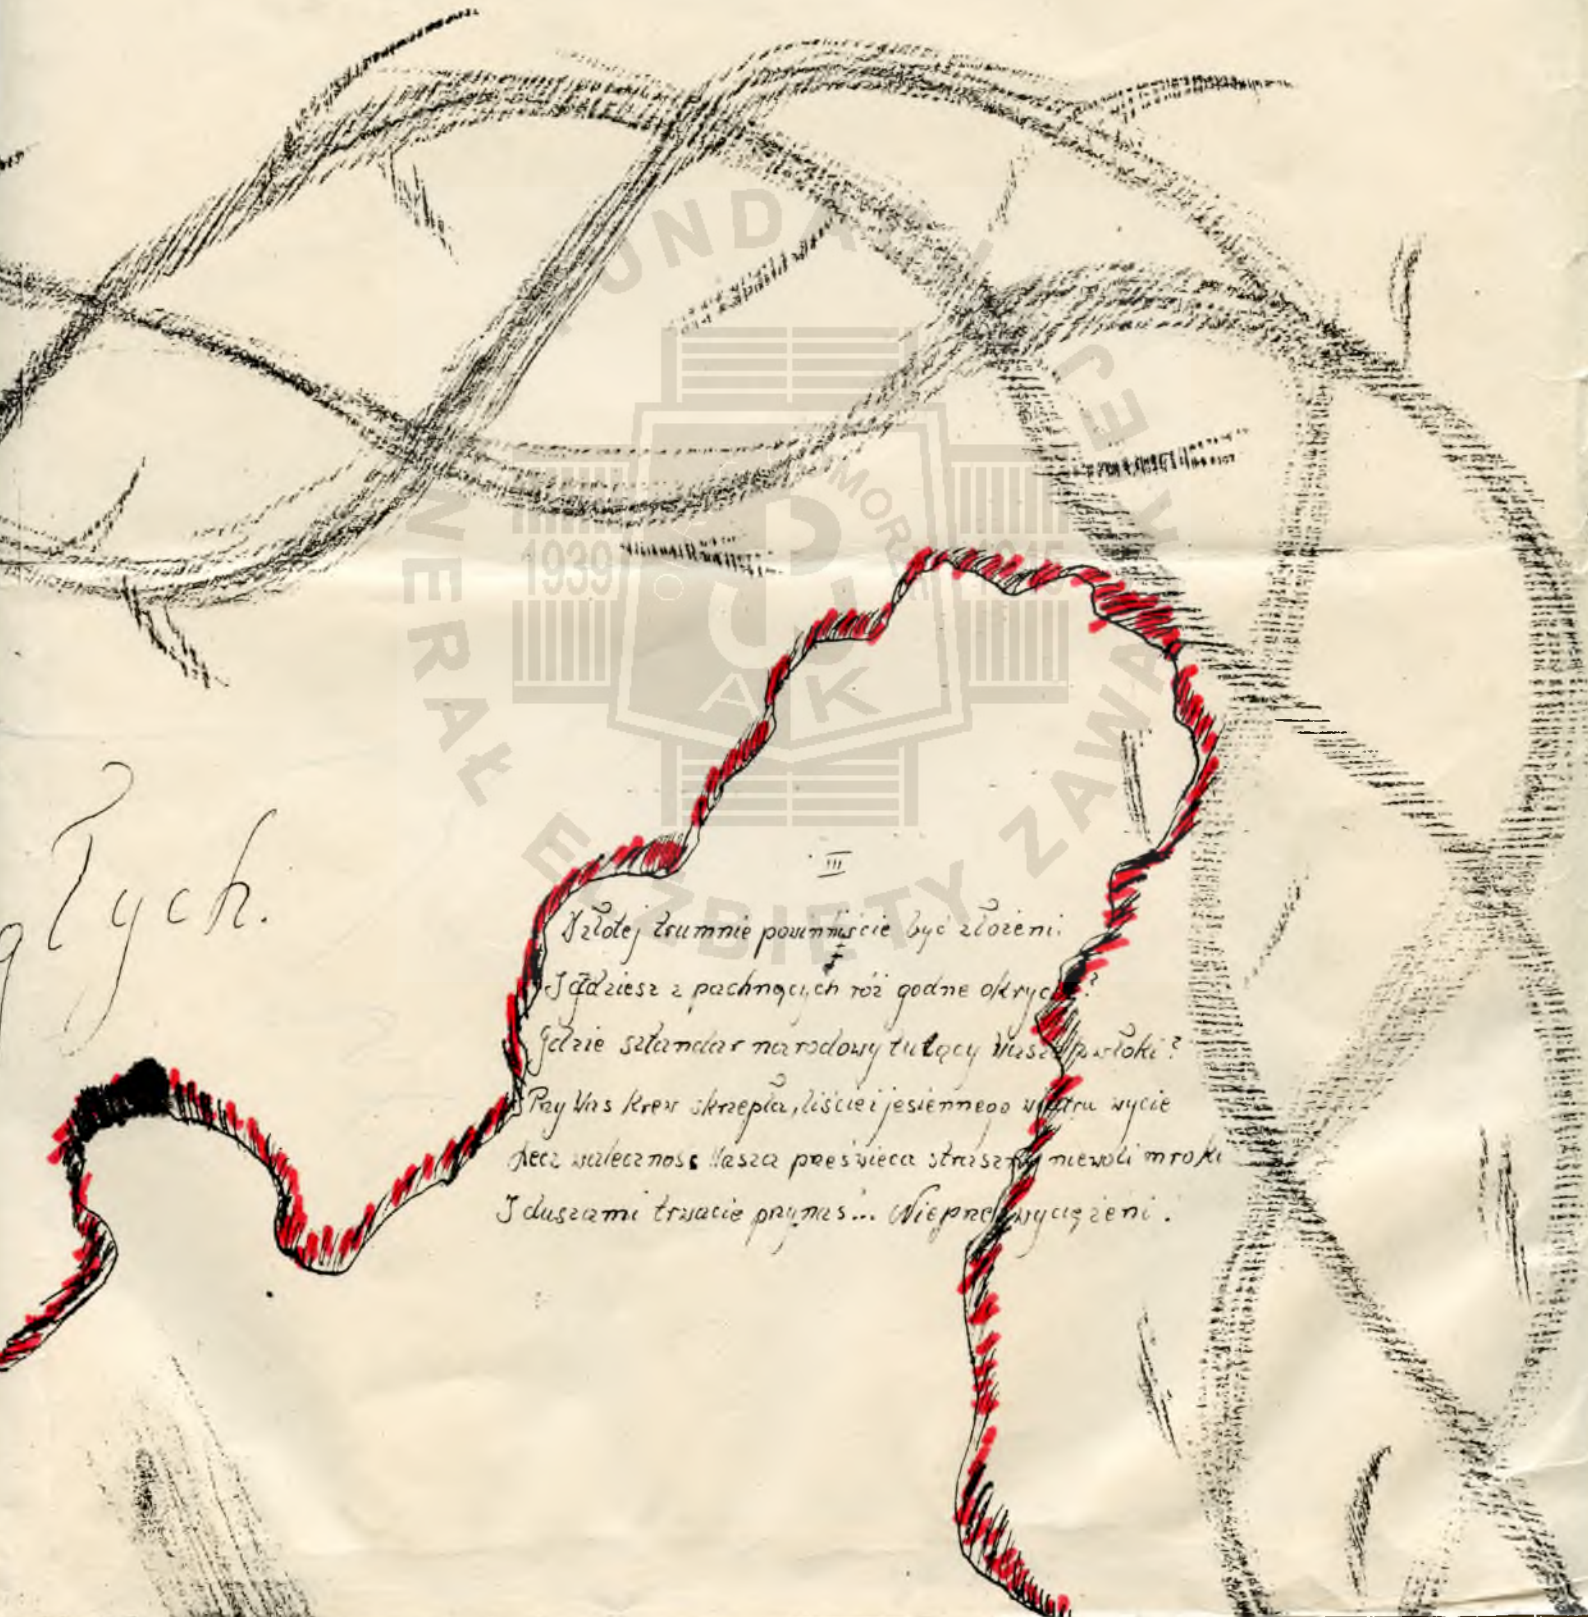 FUNDACJA GENERAŁ ELŻBIETY ZAWACKIEJ
MEMORIA
1939 1945
AK
głych.
III
Złotej trumnie powinniście być złożeni.
I gdzież z pachnących róż godne okrycie?
Gdzie sztandar narodowy tulący Wasze zwłoki?
Przy Was krew skrzepła, liście i jesiennego wiatru wycie
Lecz waleczność Wasza prześwieca straszny niewoli mroki
I duszami trwacie przy nas... Nieprzezwyciężeni.